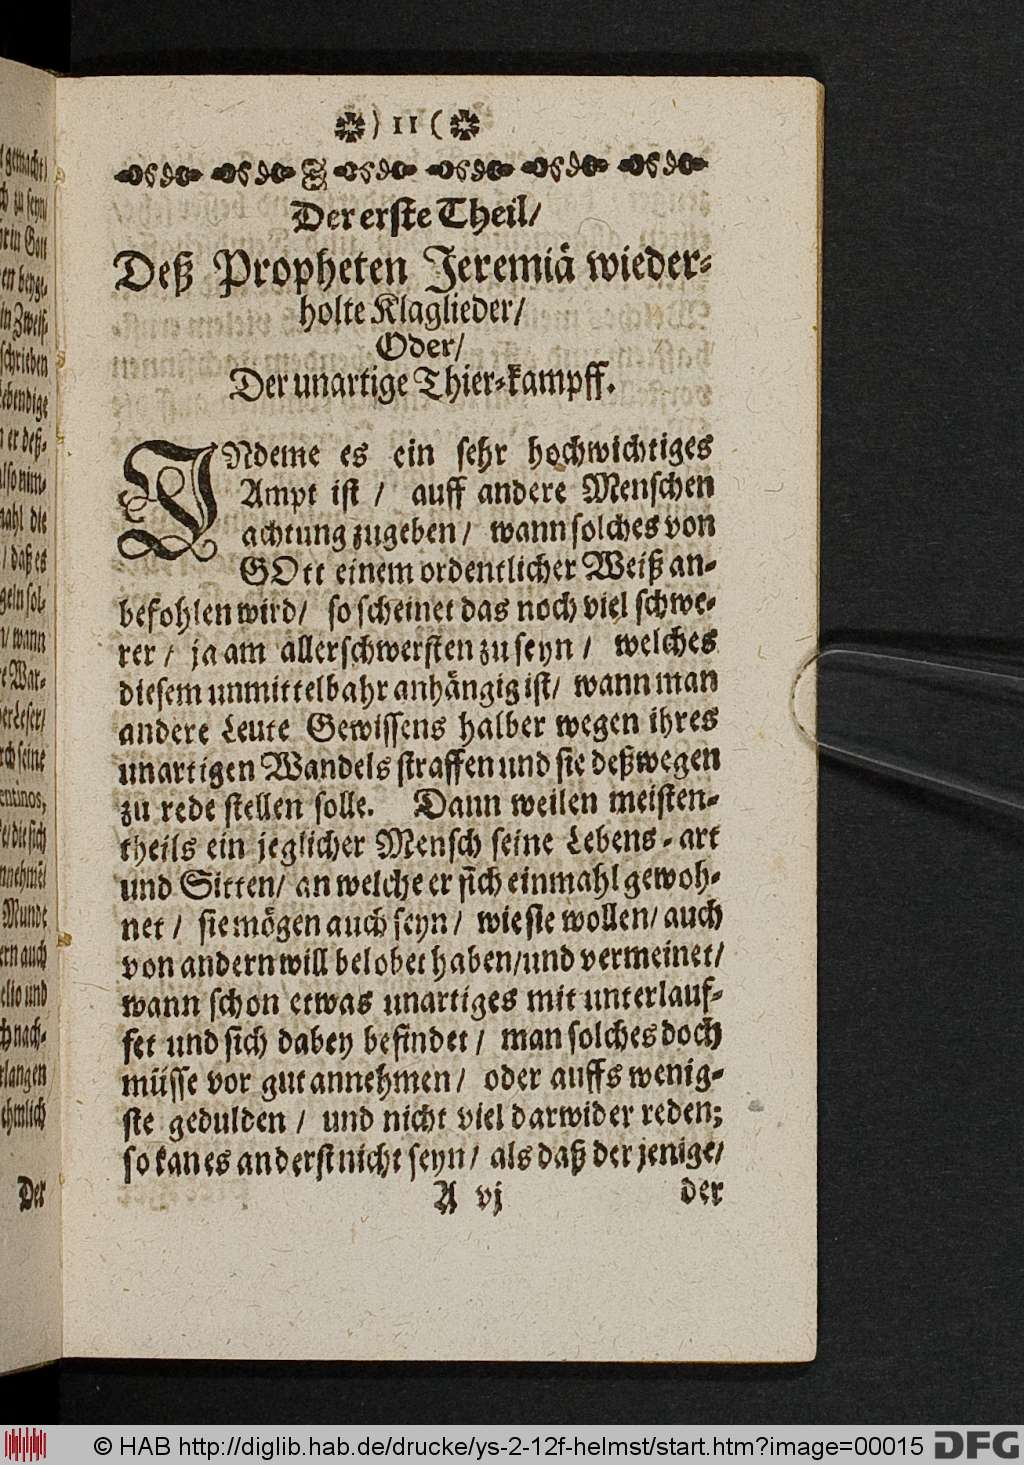 ) 11 (
Der erste Theil/
Deß Propheten Jeremiä wieder-
holte Klaglieder/
Oder/
Der unartige Thier-kampff.
INdeme es ein sehr hochwichtiges
Ampt ist / auff andere Menschen
achtung zugeben / wann solches von
GOtt einem ordentlicher Weiß an-
befohlen wird / so scheinet das noch viel schwe-
rer / ja am allerschwersten zu seyn / welches
diesem unmittelbahr anhängig ist / wann man
andere Leute Gewissens halber wegen ihres
unartigen Wandels straffen und sie deßwegen
zu rede stellen solle. Dann weilen meisten-
theils ein jeglicher Mensch seine Lebens-art
und Sitten / an welche er sich einmahl gewoh-
net / sie mögen auch seyn / wie sie wollen / auch
von andern will belobet haben / und vermeinet /
wann schon etwas unartiges mit unterlauf-
fet und sich dabey befindet / man solches doch
müsse vor gut annehmen / oder auffs wenig-
ste gedulden / und nicht viel darwider reden;
so kan es anderst nicht seyn / als daß der jenige /
A vj der
gemacht
zu seyn/
Gott
beyge-
Zweif-
schrieben
Lebendige
er deß-
also nim-
mahl die
/ daß es
sol-
/ wann
War-
Leser/
seine
entinos,
die sich
Munde
auch
und
nach-
langen
ehmlich
Der
© HAB http://diglib.hab.de/drucke/ys-2-12f-helmst/start.htm?image=00015
DFG